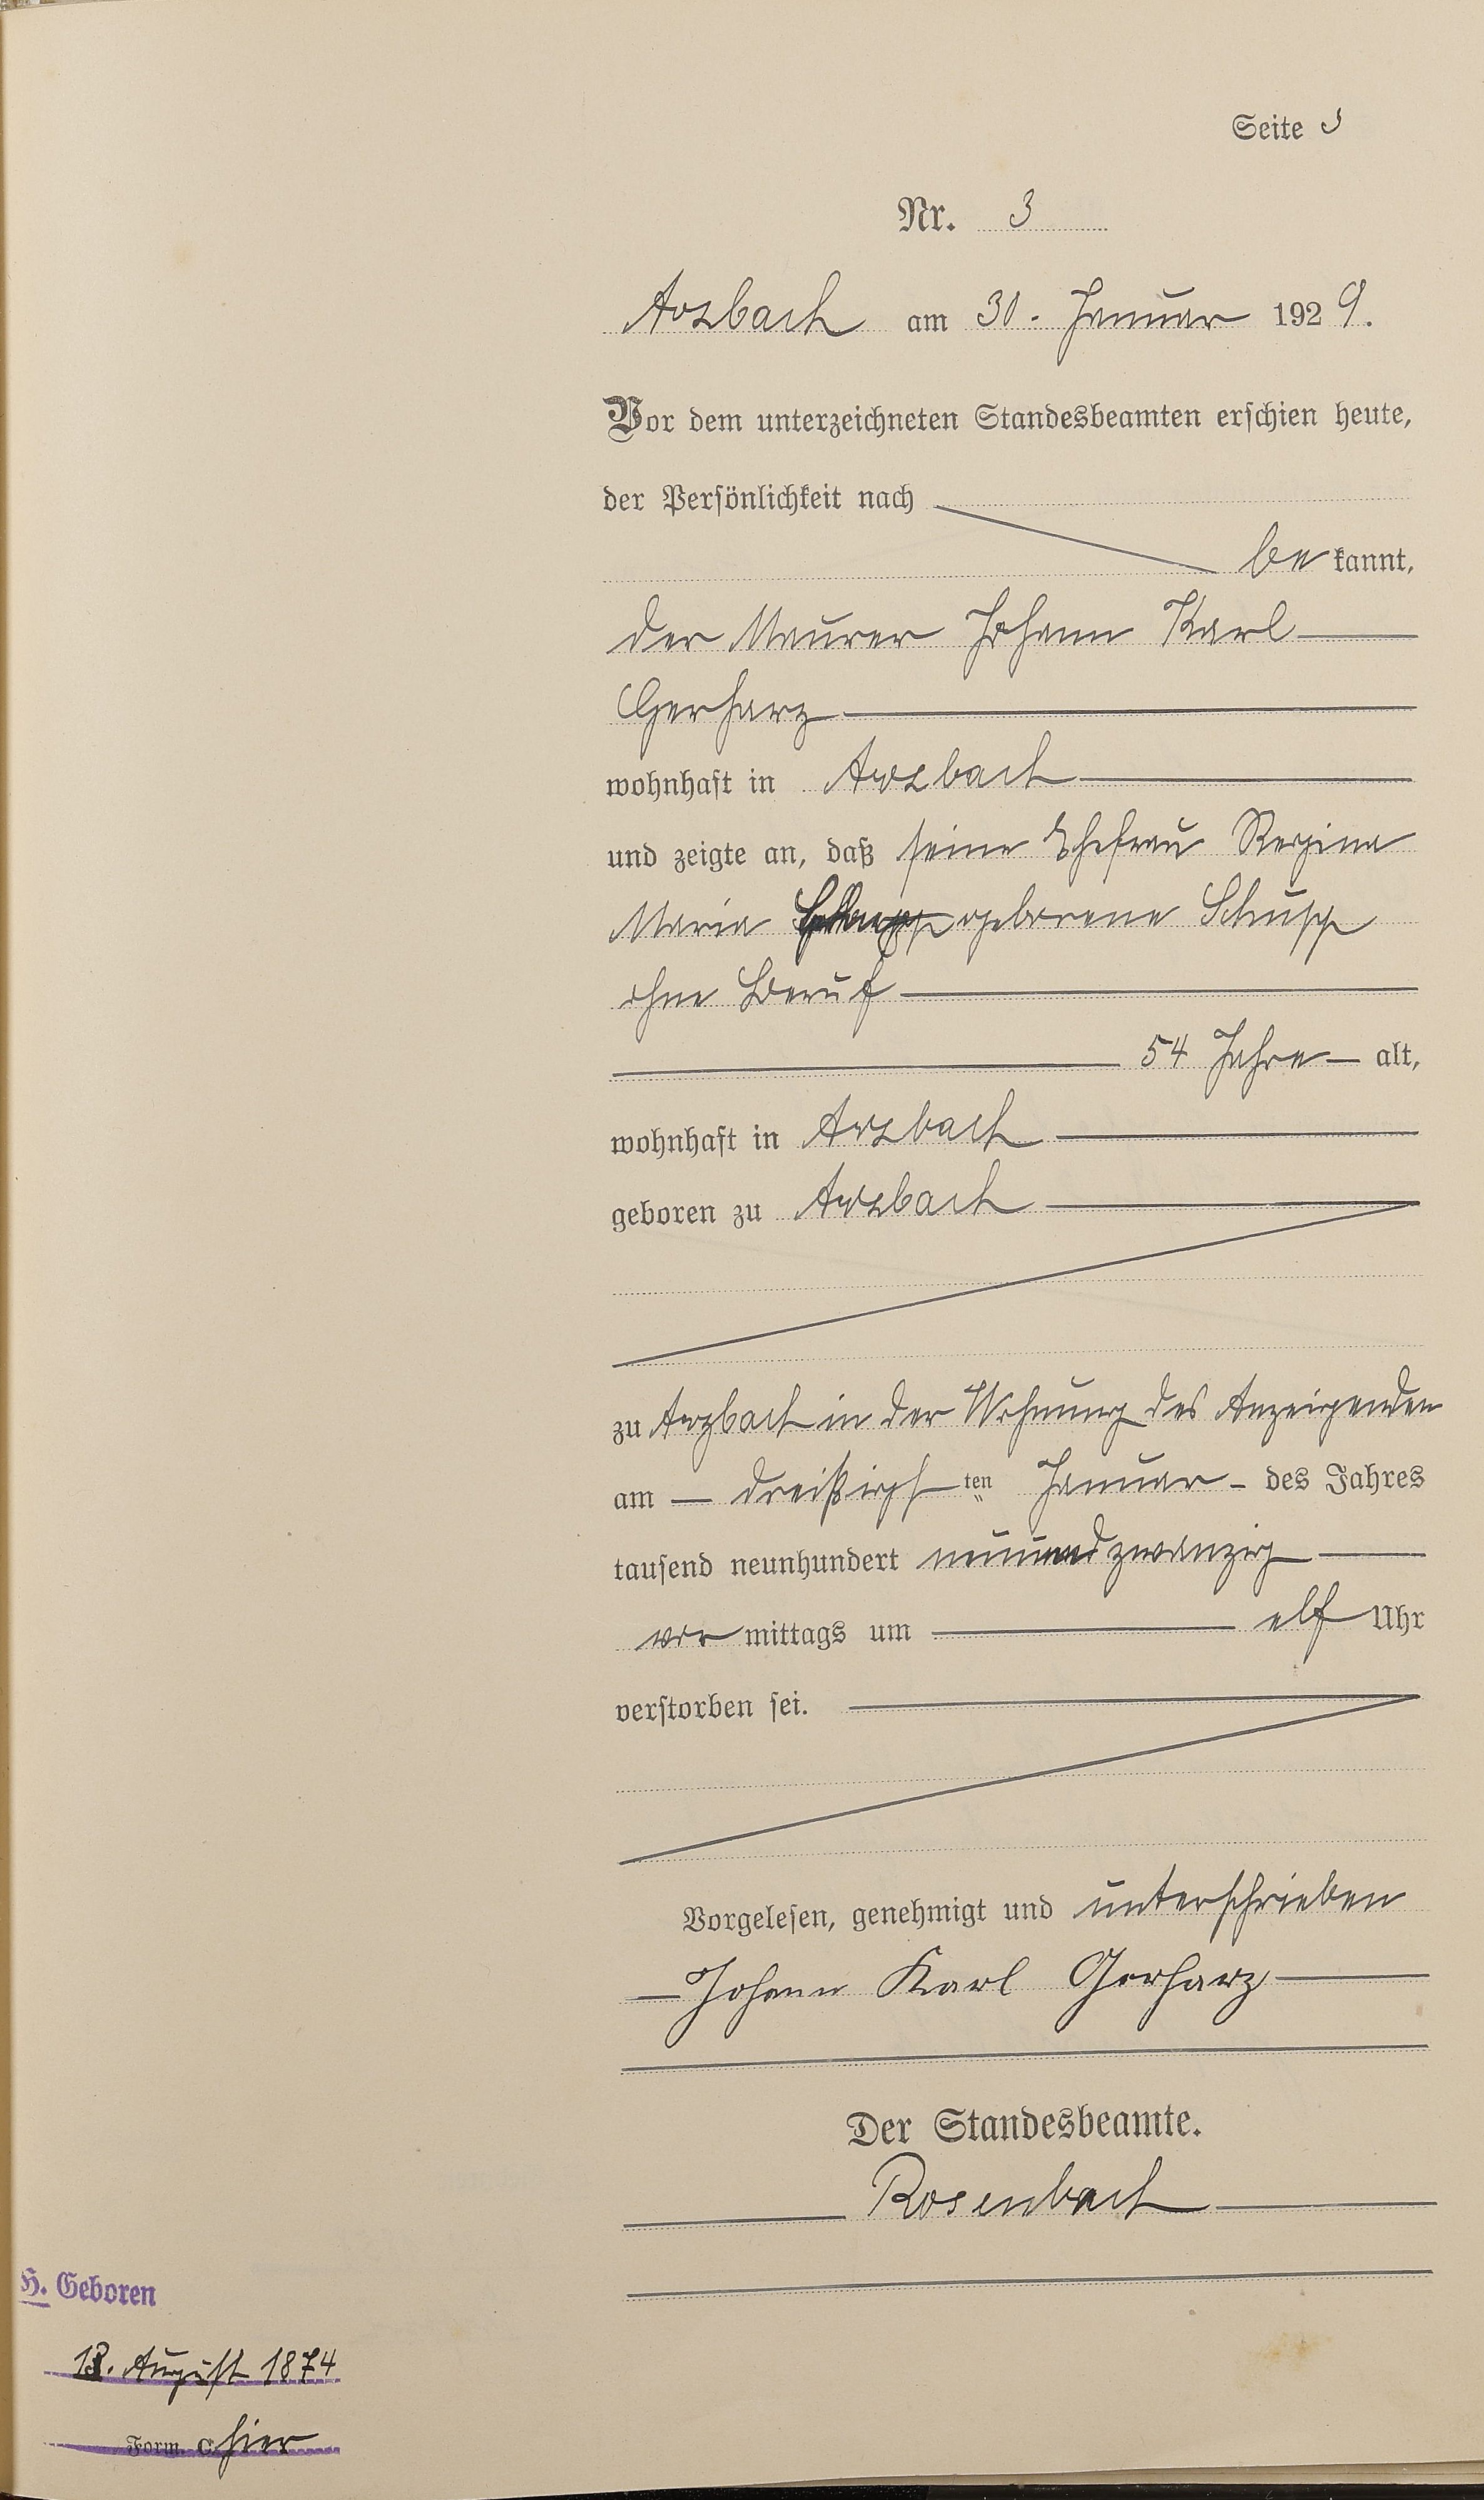 Seite 3
Nr. 3
Arzbach am 30. Januar 1929.
Vor dem unterzeichneten Standesbeamten erschien heute,
der Persönlichkeit nach
bekannt,
der Maurer Johann Karl
Gerharz
wohnhaft in Arzbach
und zeigte an, daß seine Ehefrau Regina
Maria geborene Schupp
ohne Beruf
54 Jahre alt,
wohnhaft in Arzbach
geboren zu Arzbach
zu Arzbach in der Wohnung des Anzeigenden
am dreißigsten Januar des Jahres
tausend neunhundert neunundzwanzig
vormittags um elf Uhr
verstorben sei.
Vorgelesen, genehmigt und unterschrieben
Johann Karl Gerharz
Der Standesbeamte.
Rosenbach
H. Geboren
August 1874
Form. C hier